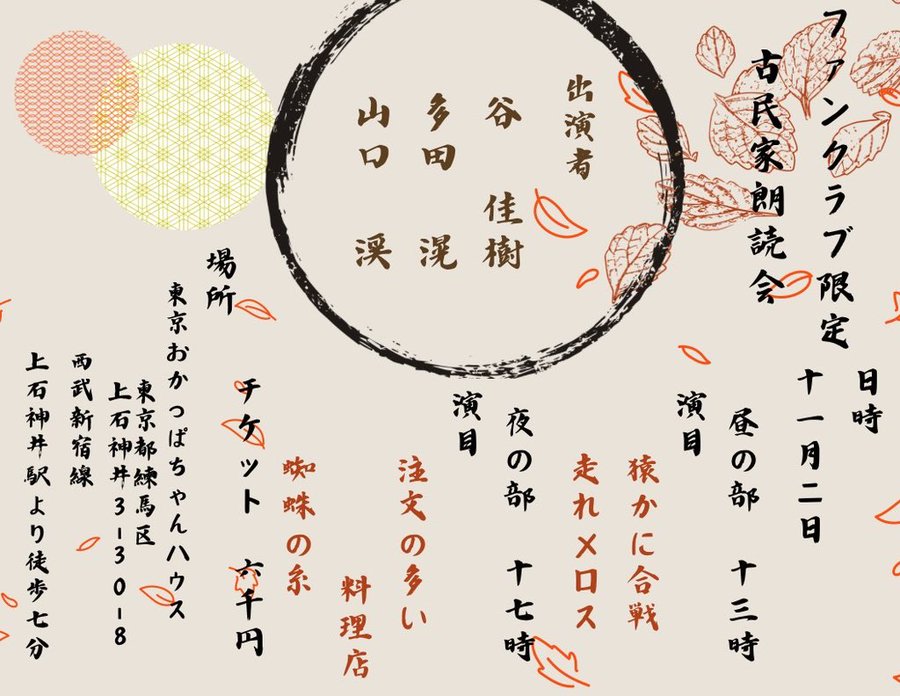 ファンクラブ限定
古民家朗読会
出演者
谷 佳樹
多田 滉
山口 渓
日時
十一月二日
昼の部 十三時
演目
猿かに合戦
走れメロス
夜の部 十七時
演目
注文の多い
料理店
蜘蛛の糸
チケット 六千円
場所
東京おかっぱちゃんハウス
東京都練馬区
上石神井3-30-8
西武新宿線
上石神井駅より徒歩七分